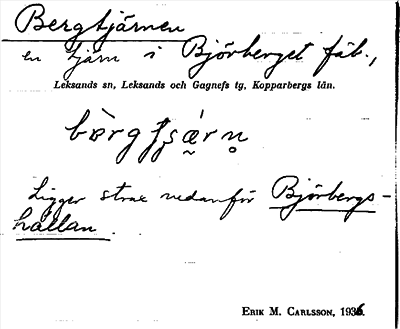 Bergtjärnen
en tjärn i Björberget fäb.,
Leksands sn, Leksands och Gagnefs tg, Kopparbergs län.
Ligger strax nedanför Björbergs-
hallan.
ERIK M. CARLSSON, 1936.